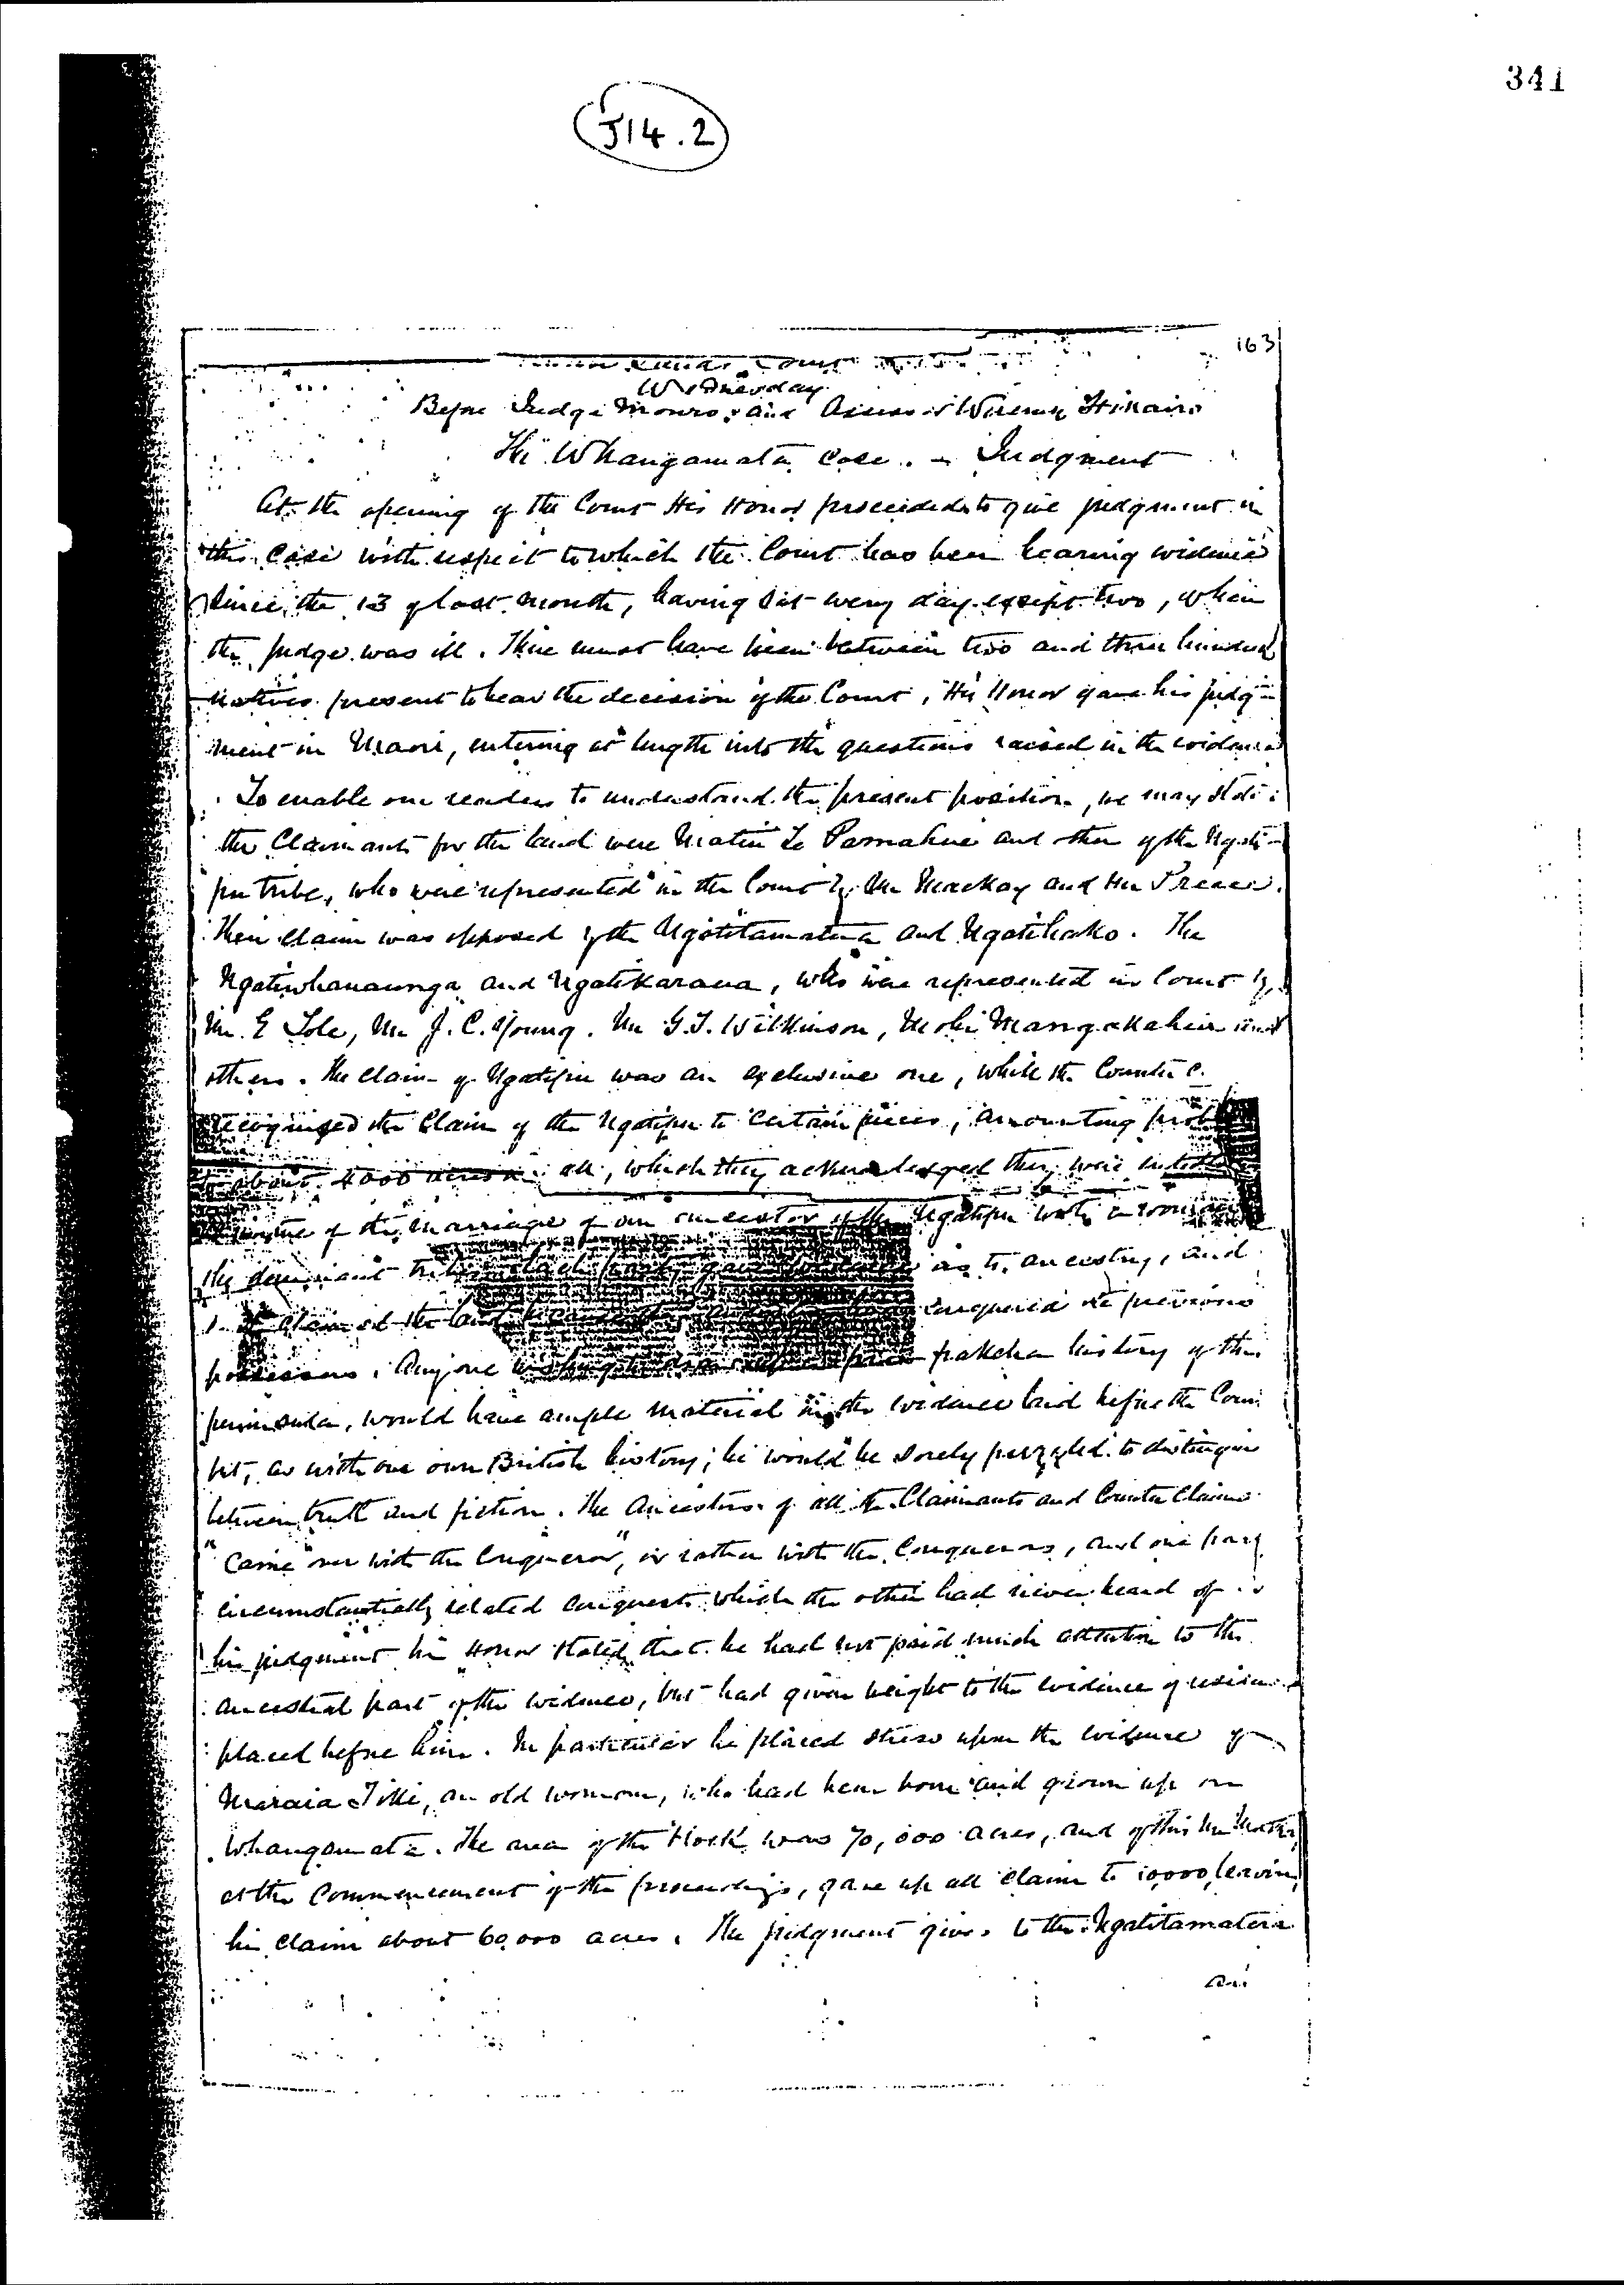 341
J14.2
163
Lands Court
Wednesday
Before Judge Monro and Assessor Wiremu Hikairo
The Whangamata Case. – Judgment
At the opening of the Court His Honor proceeded to give judgment in
this Case with respect to which the Court has been hearing evidence
since the 13 of last month, having sit every day except two, when
the judge was ill. There must have been between two and three hundred
natives present to hear the decision of the Court, His Honor gave his judg-
ment in Maori, entering at length into the questions raised in the evidence
To enable our readers to understand the present position, we may state
the Claimants for the land were and other of the Ngati-
pu tribe, who were represented in the Court by Mr Mackay and Mr Preece.
Their claim was opposed by the Ngatitamatera and Ngatihako. The
Ngatiwhanaunga and Ngatikaraua, who were represented in Court by
Mr. E Tole, Mr J. C. Young. Mr G. T. Wilkinson, Mohi Mangakahia and
others. The claim of Ngatipu was an exclusive one, while the Counter C.
recognized the Claim of the Ngatipu to certain pieces, amounting
about 4000 acres in all, which they acknowledged they were
of the marriage of an ancestor of the Ngatipu with a woman
the dominant tribe. Each party gave evidence as to ancestry, and
claimed the land conquered the previous
possessors. Anyone wishing to pakeha history of this
peninsula, would have ample material in the evidence laid before the Cour
but, as with our own British history; he would be sorely puzzled to distinguish
between truth and fiction. The Ancestors of all the Claimants and Counter Claims
"came over with the Conqueror", or rather with the Conquerors, and one party
circumstantially related conquests which the other had never heard of. in
his judgment his Honor stated that he had not paid much attention to the
ancestral part of the evidence, but had given weight to the evidence of residence
placed before him. In particular he placed stress upon the evidence of
Maraea Tiki, an old woman, who had been born and grown up on
Whangamata. The area of the block was 70,000 acres, and of this Mr
at the Commencement of the proceedings, gave up all claim to 10,000, leaving
his claim about 60,000 acres. The judgment gives to the Ngatitamatera